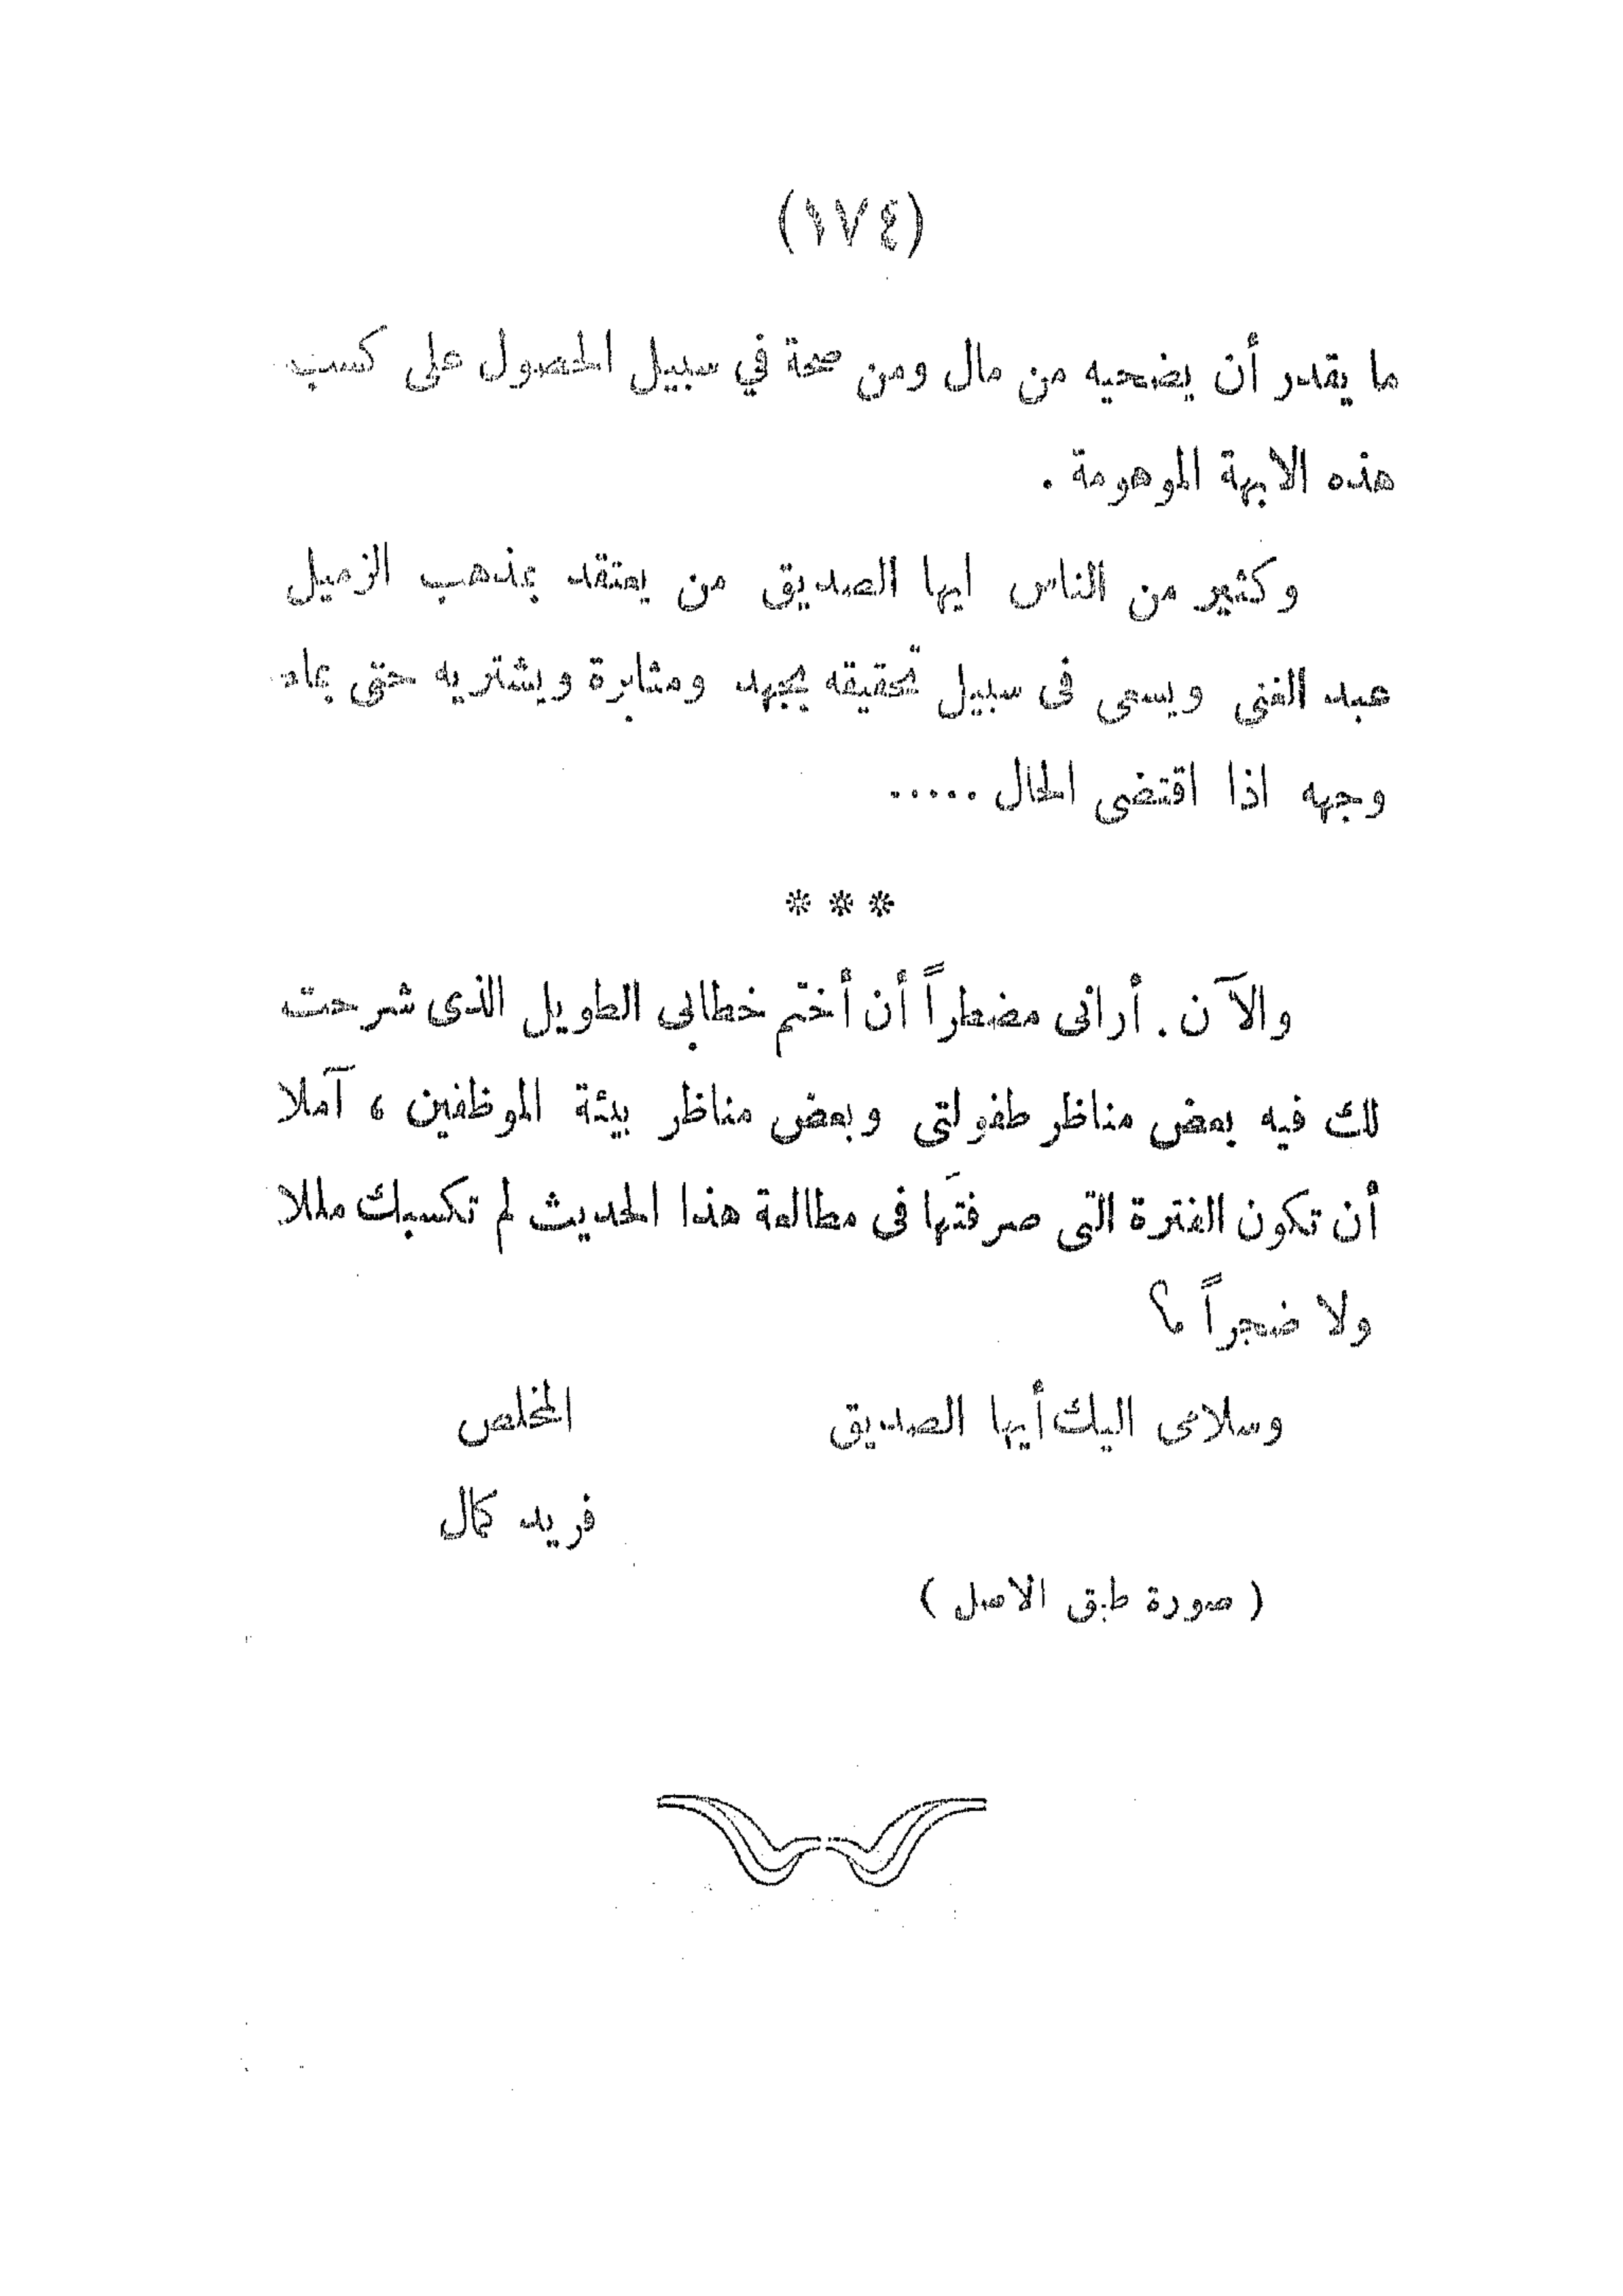 (١٧٤)
ما يقدر أن يضحيه من مال ومن صحة في سبيل الحصول على كسب
هذه الابهة الموهومة .
وكثير من الناس ايها الصديق من يعتقد بمذهب الزميل
عبد الغنى ويسعى فى سبيل تحقيقه بجهد ومثابرة ويشتريه حتى بماء
وجهه اذا اقتضى الحال .....
***
والآن . أرانى مضطراً أن أختم خطابى الطويل الذى شرحت
لك فيه بعض مناظر طفولتى وبعض مناظر بيئة الموظفين ، آملا
أن تكون الفترة التى صرفتَها فى مطالعة هذا الحديث لم تكسبك مللا
ولا ضجراً ؟
وسلامى اليك أيها الصديق المخلص
فريد كمال
( صورة طبق الاصل )